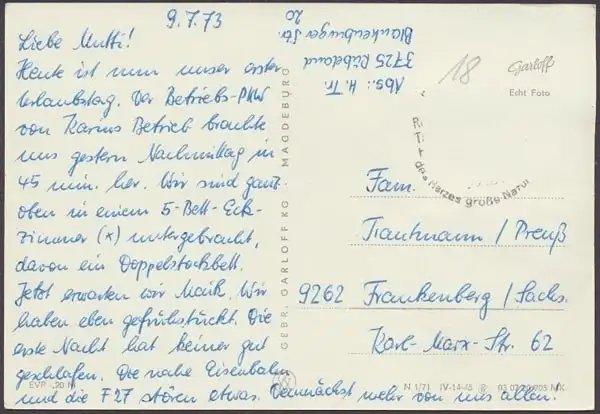 9.7.73
Liebe Mutti!
Heute ist nun unser erster
Urlaubstag. Der Betriebs-PKW
von Karins Betrieb brachte
uns gestern Nachmittag in
45 min. her. Wir sind ganz
oben in einem 5-Bett-Eck-
zimmer (x) untergebracht,
davon ein Doppelstockbett.
Jetzt erwarten wir Maik. Wir
haben eben gefrühstückt. Die
erste Nacht hat keiner gut
geschlafen. Die nahe Eisenbahn
und die F27 stören etwas. Demnächst mehr von uns allen.
Abs.: H. Tr.
3725 Rübeland
Blankenburger Str.
20
GEBR. GARLOFF KG MAGDEBURG
18
Garloff
Echt Foto
des Harzes große Natur
Fam.
Trautmann / Preuß
9262 Frankenberg / Sachs.
Karl-Marx-Str. 62
EVP -,20 M
N 1/71 IV-14-45